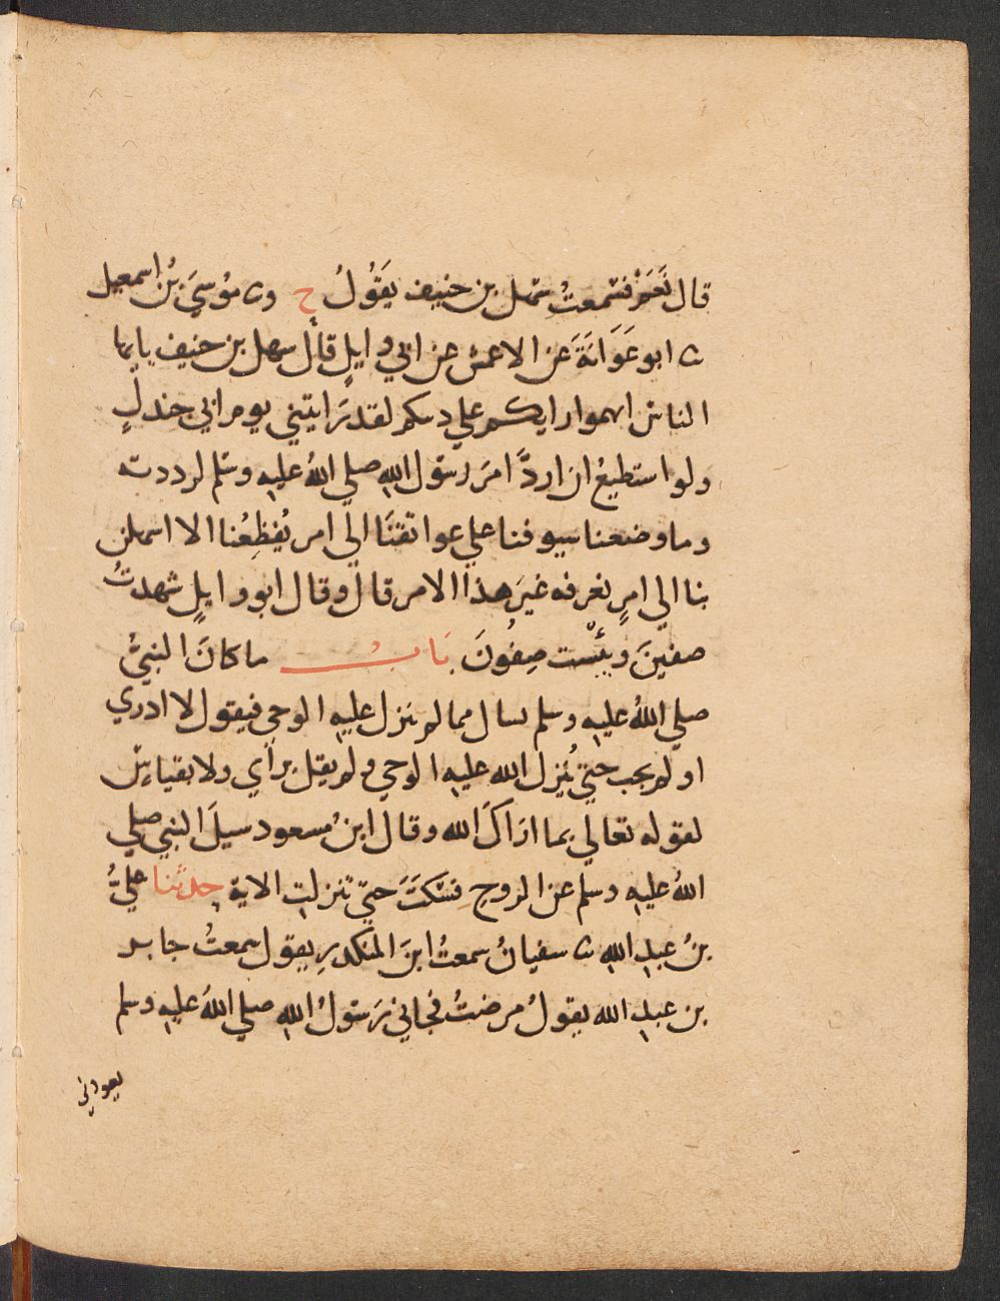 قال نَعَمْ فسَمعتُ سَهل بن حنيف يَقُولُ ح وثنا مُوسيَ بنُ اسمعيل
ثنا ابو عَوَانَةَ عَن الاعمش عن ابي وايلٍ قال سهل بن حنيف يايها
الناس اتهموا رايكم علي دينكم لقد رَايتني يوم ابي جندلٍ
ولو استطيعُ ان اردَّ امرَ رسول الله صلي اللهُ عليه وسلم لرددته
وما وضعنا سيوفنا علي عواتقنَا الي امر يُفظِعُنا الا اسهلن
بنا الي امرٍ نعرفه غيرَ هذا الامر قال وقال ابو وايلٍ شهدتُ
صفينَ وبئست صِفُونَ بَابُ ما كانَ النبيُّ
صلي اللهُ عليه وسلم يسال مما لم ينزل عليه الوحي فيقول لا ادري
او لم يجب حتي يُنزل الله عليه الوحي ولم يقل برأي ولا بقياس
لقوله تعالي بما ارَاكَ الله وقال ابنُ مسعود سيلَ النبي صلي
اللهُ عليه وسلم عن الروح فسَكتَ حتي تنزلت الاية حدثنا عليُّ
بنُ عبد الله ثنا سفيانُ سمعتُ ابنَ المنكدرِ يقول سمعتُ جابر
بن عبد الله يقولُ مرضتُ فجاني رَسولُ الله صلي اللهُ عليه وسلم
يعودني